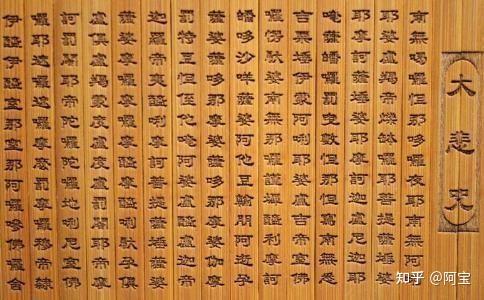 大悲咒
南無喝囉怛那哆囉夜耶南無阿唎
耶婆盧羯帝爍缽囉耶菩提薩埵婆
耶摩訶薩埵婆耶摩訶迦盧尼迦耶
唵薩皤囉罰曳數怛那怛寫南無悉
吉栗埵伊蒙阿唎耶婆盧吉帝室佛
囉楞馱婆南無那囉謹墀醯利摩訶
皤哆沙咩薩婆阿他豆輸朋阿逝孕
薩婆薩哆那摩婆薩哆那摩婆伽摩
罰特豆怛姪他唵阿婆盧醯盧迦帝
迦羅帝夷醯唎摩訶菩提薩埵薩婆
薩婆摩囉摩囉摩醯摩醯唎馱孕俱
盧俱盧羯蒙度盧度盧罰闍耶帝摩
訶罰闍耶帝陀囉陀囉地唎尼室佛
囉耶遮囉遮囉摩麼罰摩囉穆帝隸
伊醯伊醯室那室那阿囉嘇佛囉舍
知乎 @阿宝